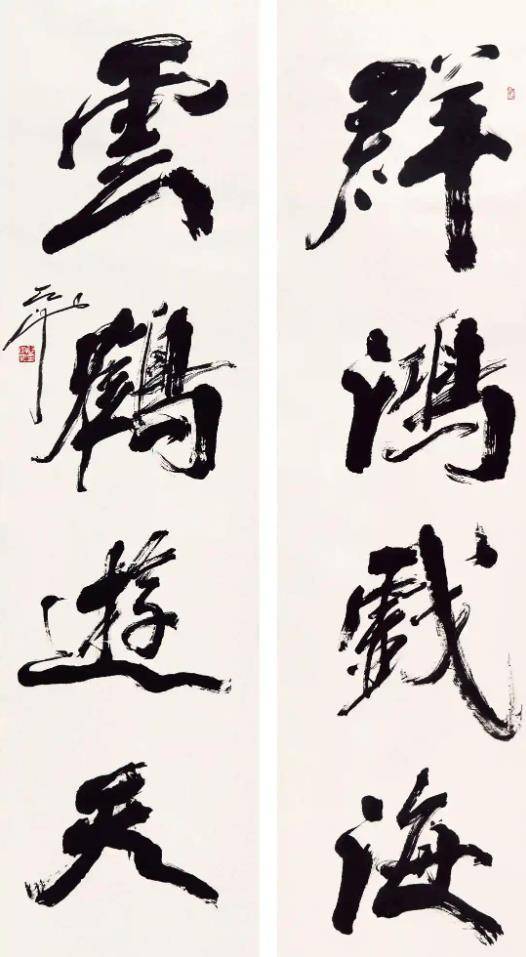 群鴻戲海
雲鶴遊天